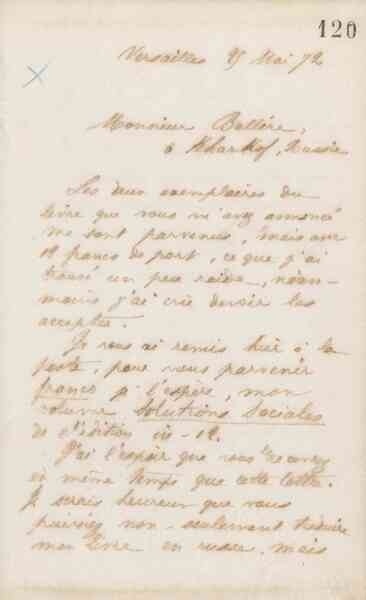 120
Versailles 25 Mai 72
Monsieur Ballère,
à Kharkof, Russie
Les deux exemplaires du
livre que vous m'avez annoncé
me sont parvenus, mais avec
18 francs de port, ce que j'ai
trouvé un peu raide, néan-
moins j'ai crû devoir les
accepter.
Je vous ai remis hier à la
poste, pour vous parvenir
franco je l'espère, mon
volume Solutions Sociales
de l'édition in-12.
J'ai l'espoir que vous le recevrez
en même temps que cette lettre.
Je serais heureux que vous
puissiez non-seulement traduire
mon livre en russe, mais